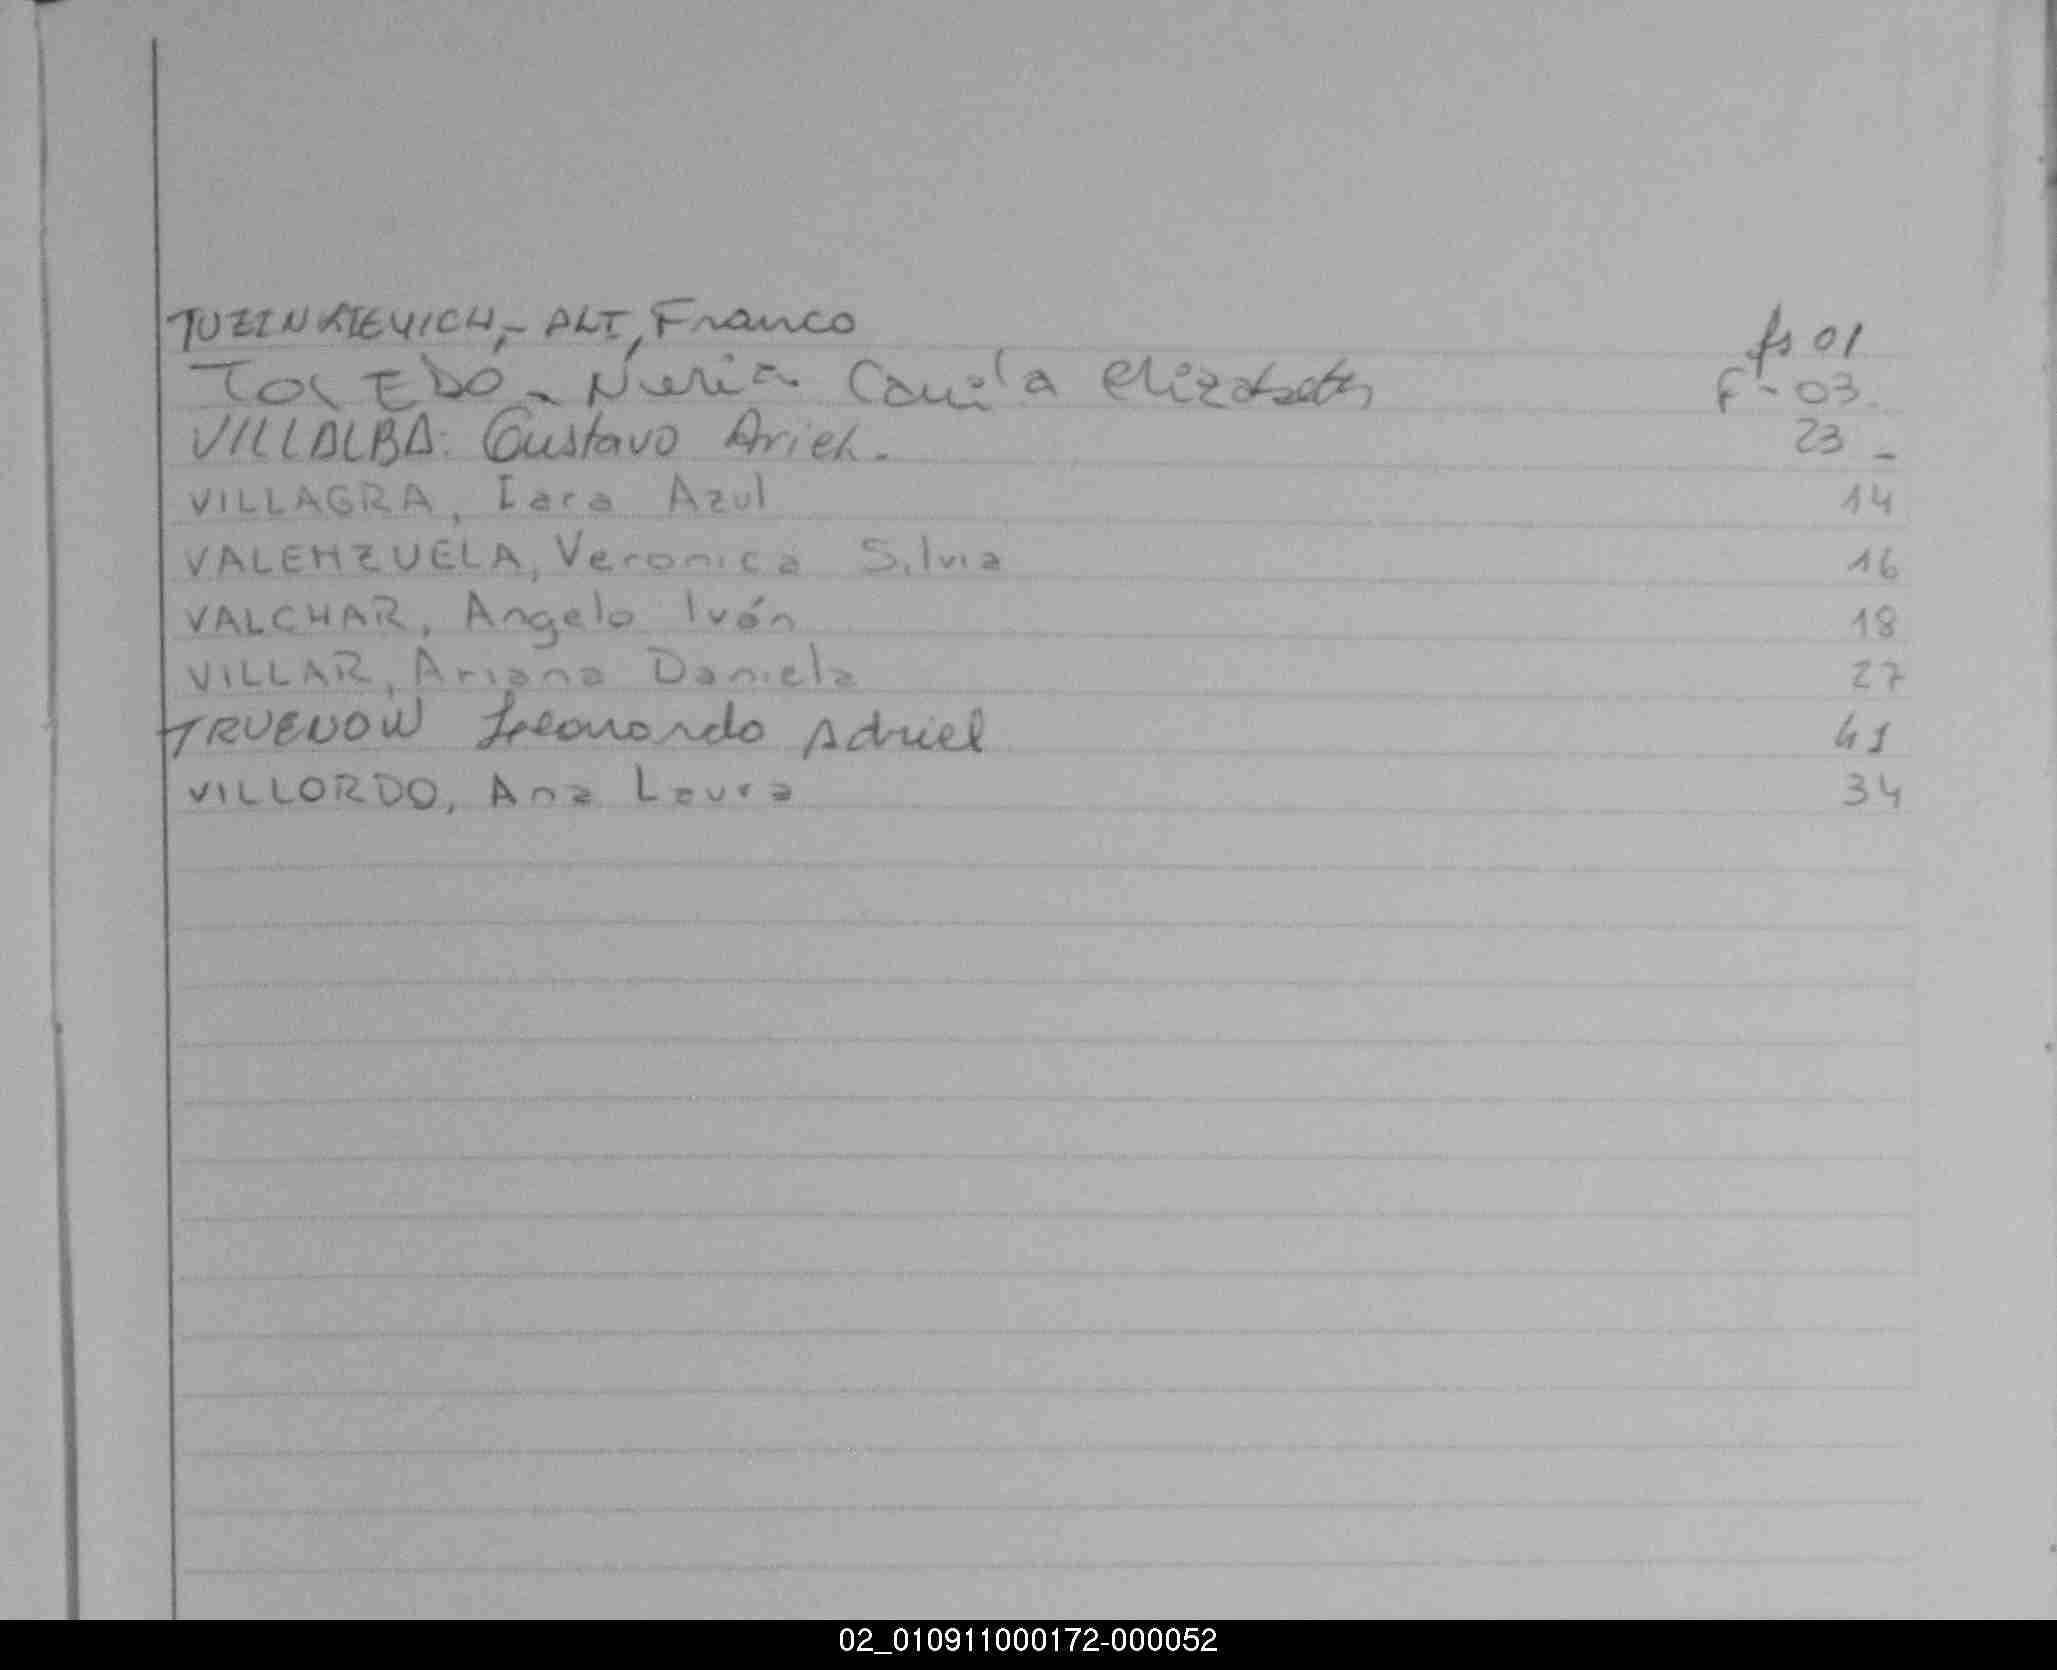 TUZINKIEVICH,- ALT, Franco fs 01
TOLEDO - Nuria Camila Elizabeth F - 03.
VILLALBA. Gustavo Ariel. 23 -
VILLAGRA, Iara Azul 14
VALENZUELA, Veronica Silvia 16
VALCHAR, Angelo Iván 18
VILLAR, Ariana Daniela 27
TRUENOW Leonardo Adriel 41
VILLORDO, Ana Laura 34
02_010911000172-000052